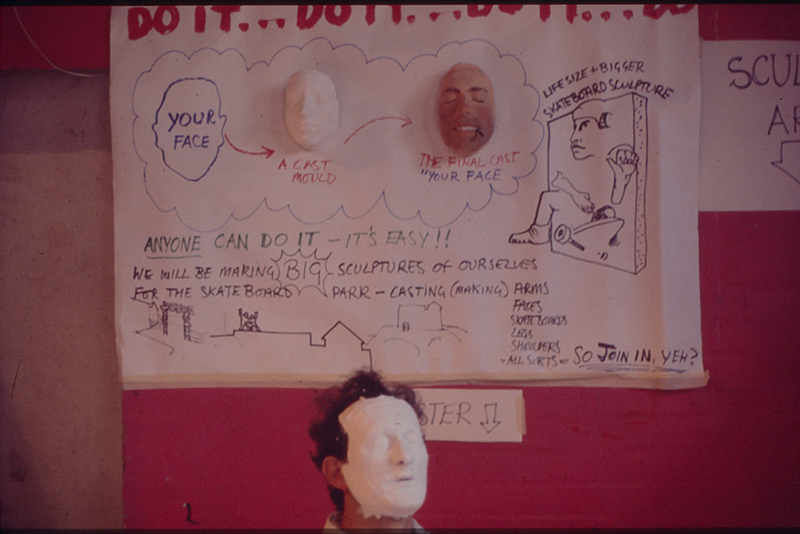 DO IT... DO IT... DO IT... DO
YOUR
FACE
A CAST
MOULD
THE FINAL CAST
"YOUR FACE
LIFE SIZE + BIGGER
SKATEBOARD SCULPTURE
ANYONE CAN DO IT - IT'S EASY!!
WE WILL BE MAKING BIG SCULPTURES OF OURSELVES
FOR THE SKATEBOARD PARK - CASTING (MAKING) ARMS
FACES
SKATEBOARDS
LEGS
SHOULDERS
- ALL SORTS -
SO JOIN IN, YEH?
SCUL
AR
STER